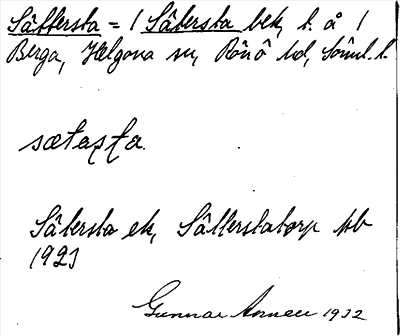 Sättersta = 1 Sätersta bek, t. å 1
Berga, Hælgona sn, Rönö hd, Söml. l.
sætaṣṭa.
Sätersta ek, Sätterstatorp
1923
Gunnar 1932